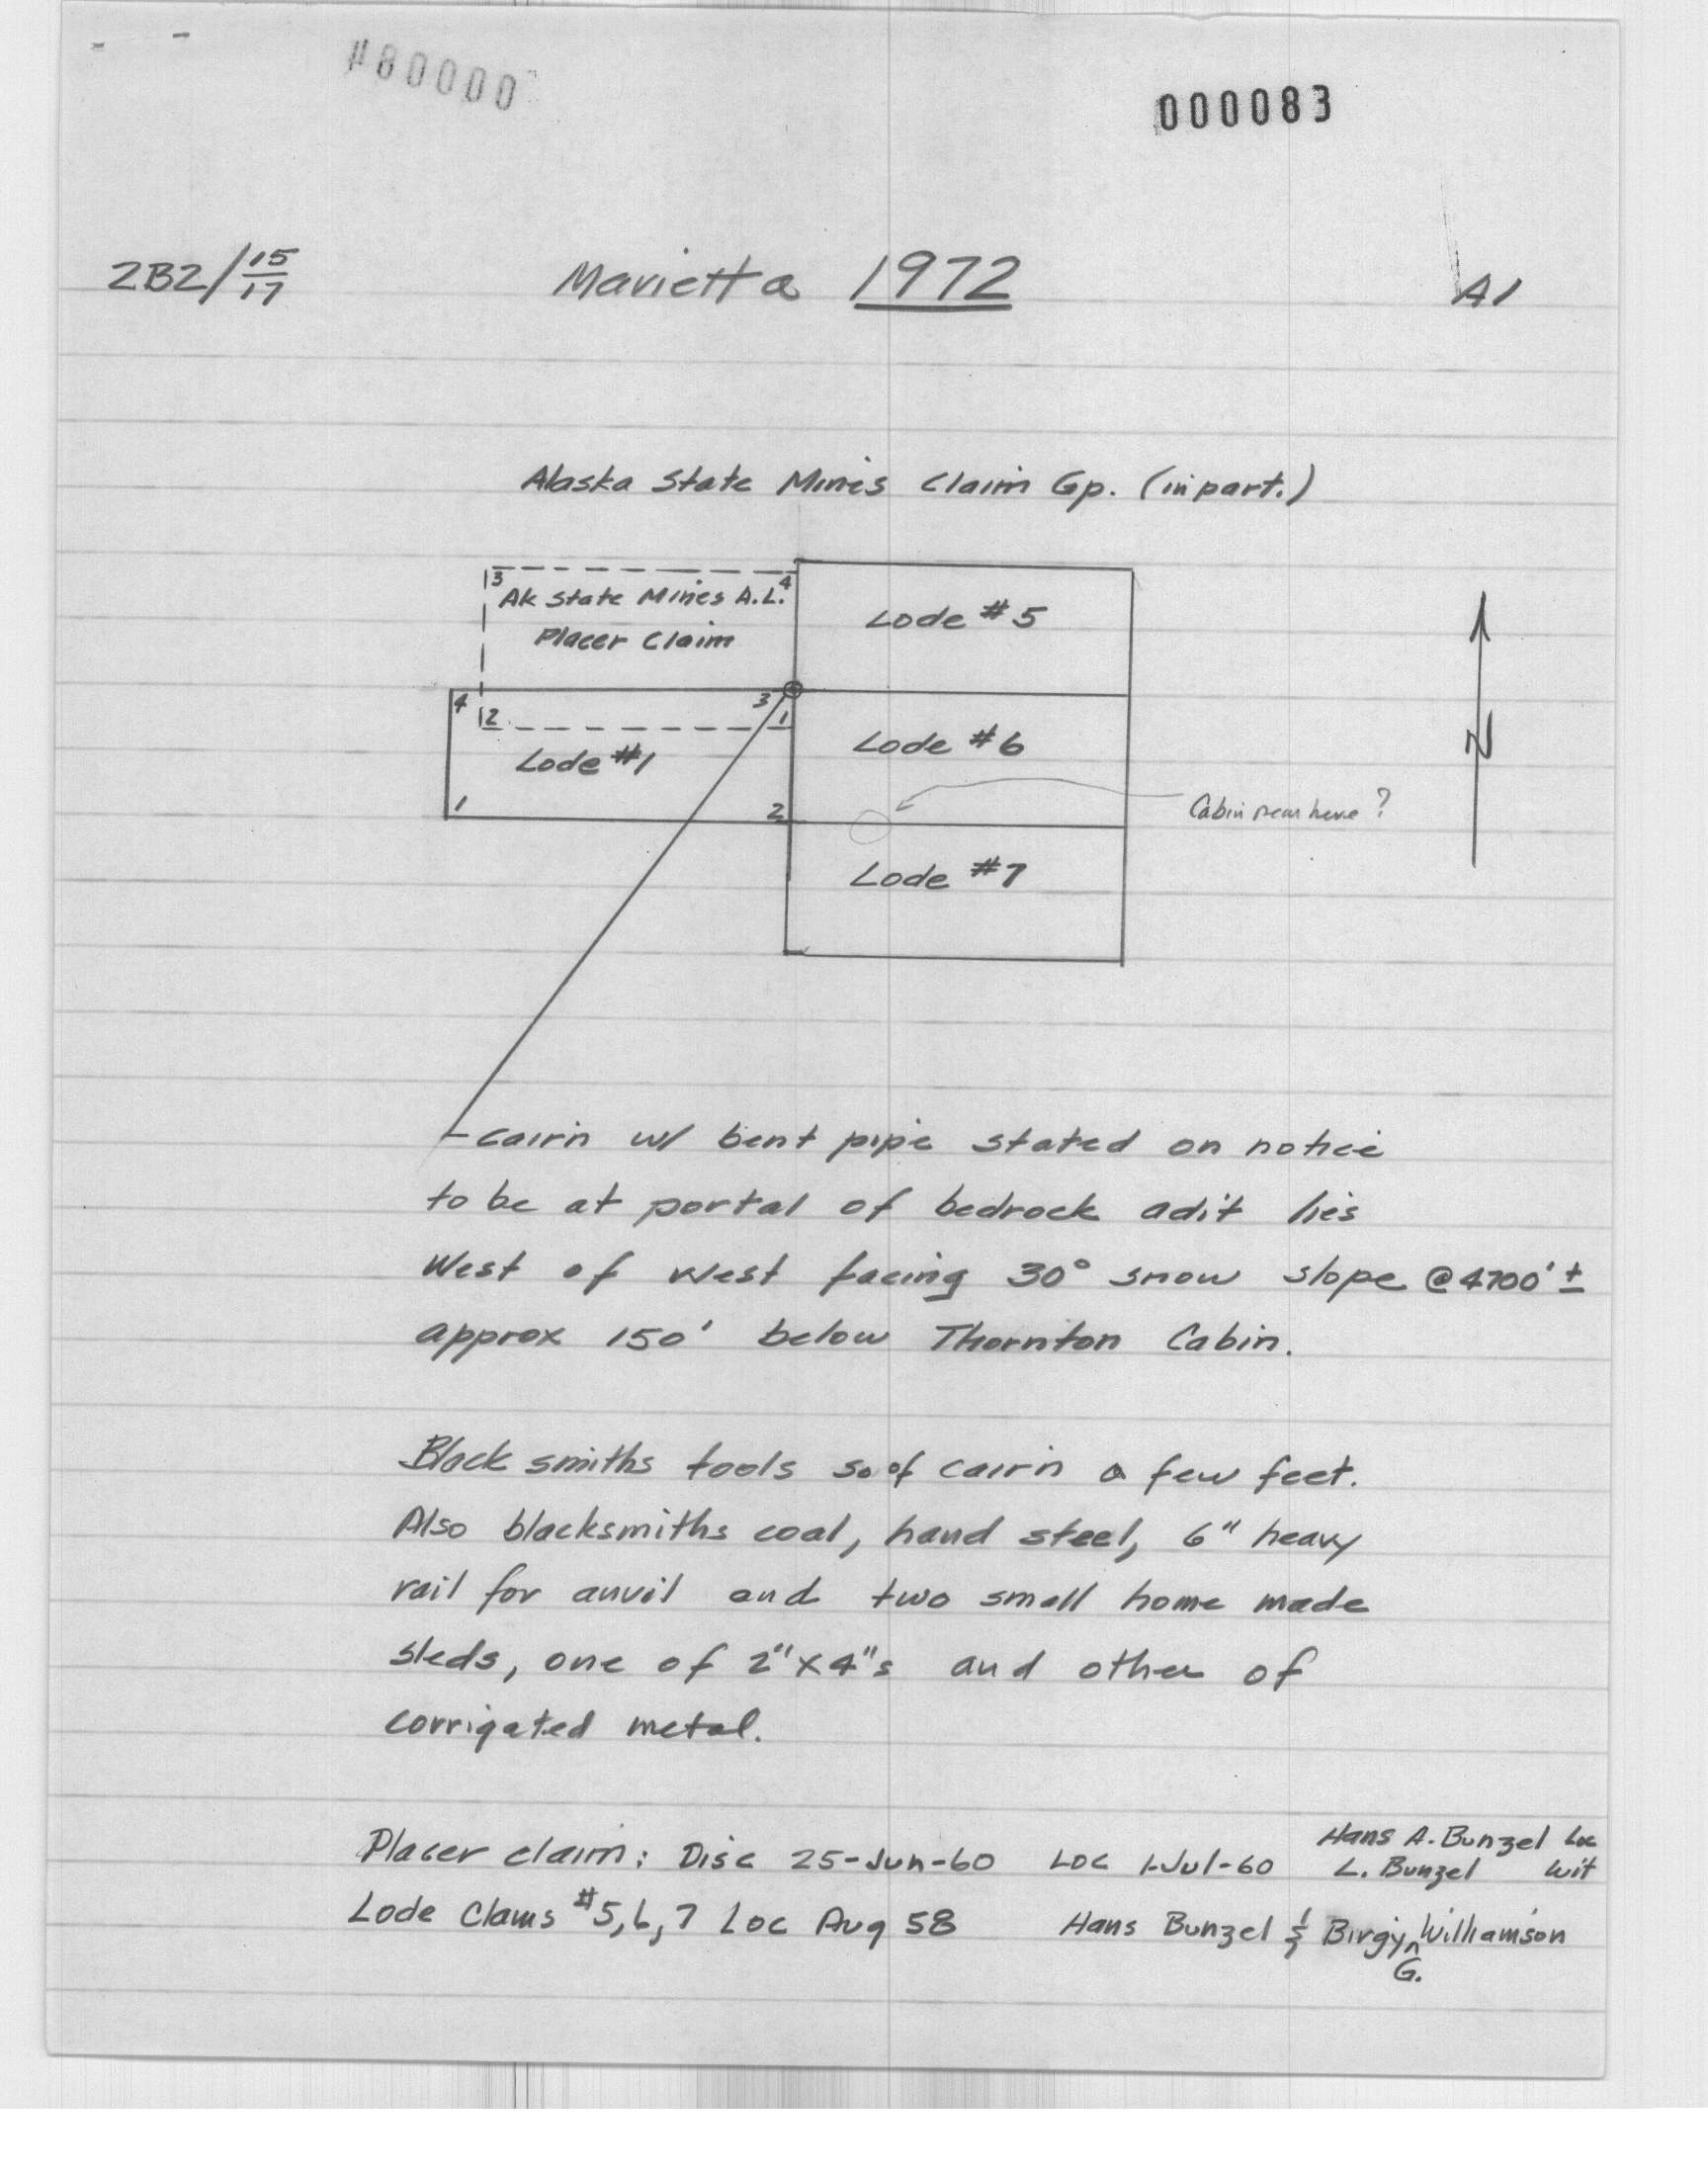 000083
2B2/15/17 Marietta 1972 A1
Alaska State Mines Claim Gp. (in part.)
3 4
Ak State Mines A.L.
Placer Claim
Lode #5
4 3
2 1
Lode #1
Lode #6
1 2
Cabin near here?
Lode #7
N
cairn w/ bent pipe stated on notice
to be at portal of bedrock adit lies
West of west facing 30° snow slope @ 4700' ±
approx 150' below Thornton Cabin.
Black smiths tools so of cairn a few feet.
Also blacksmiths coal, hand steel, 6" heavy
rail for anvil and two small home made
sleds, one of 2"x4"s and other of
corrigated metal.
Placer claim: Disc 25-Jun-60 Loc 1-Jul-60 Hans A. Bunzel Loc
L. Bunzel Wit
Lode Clams #5,6,7 Loc Aug 58 Hans Bunzel & Birgyn Williamson
G.